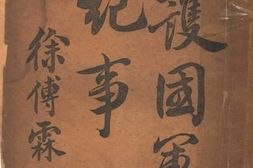 護國軍
紀事
徐傅霖